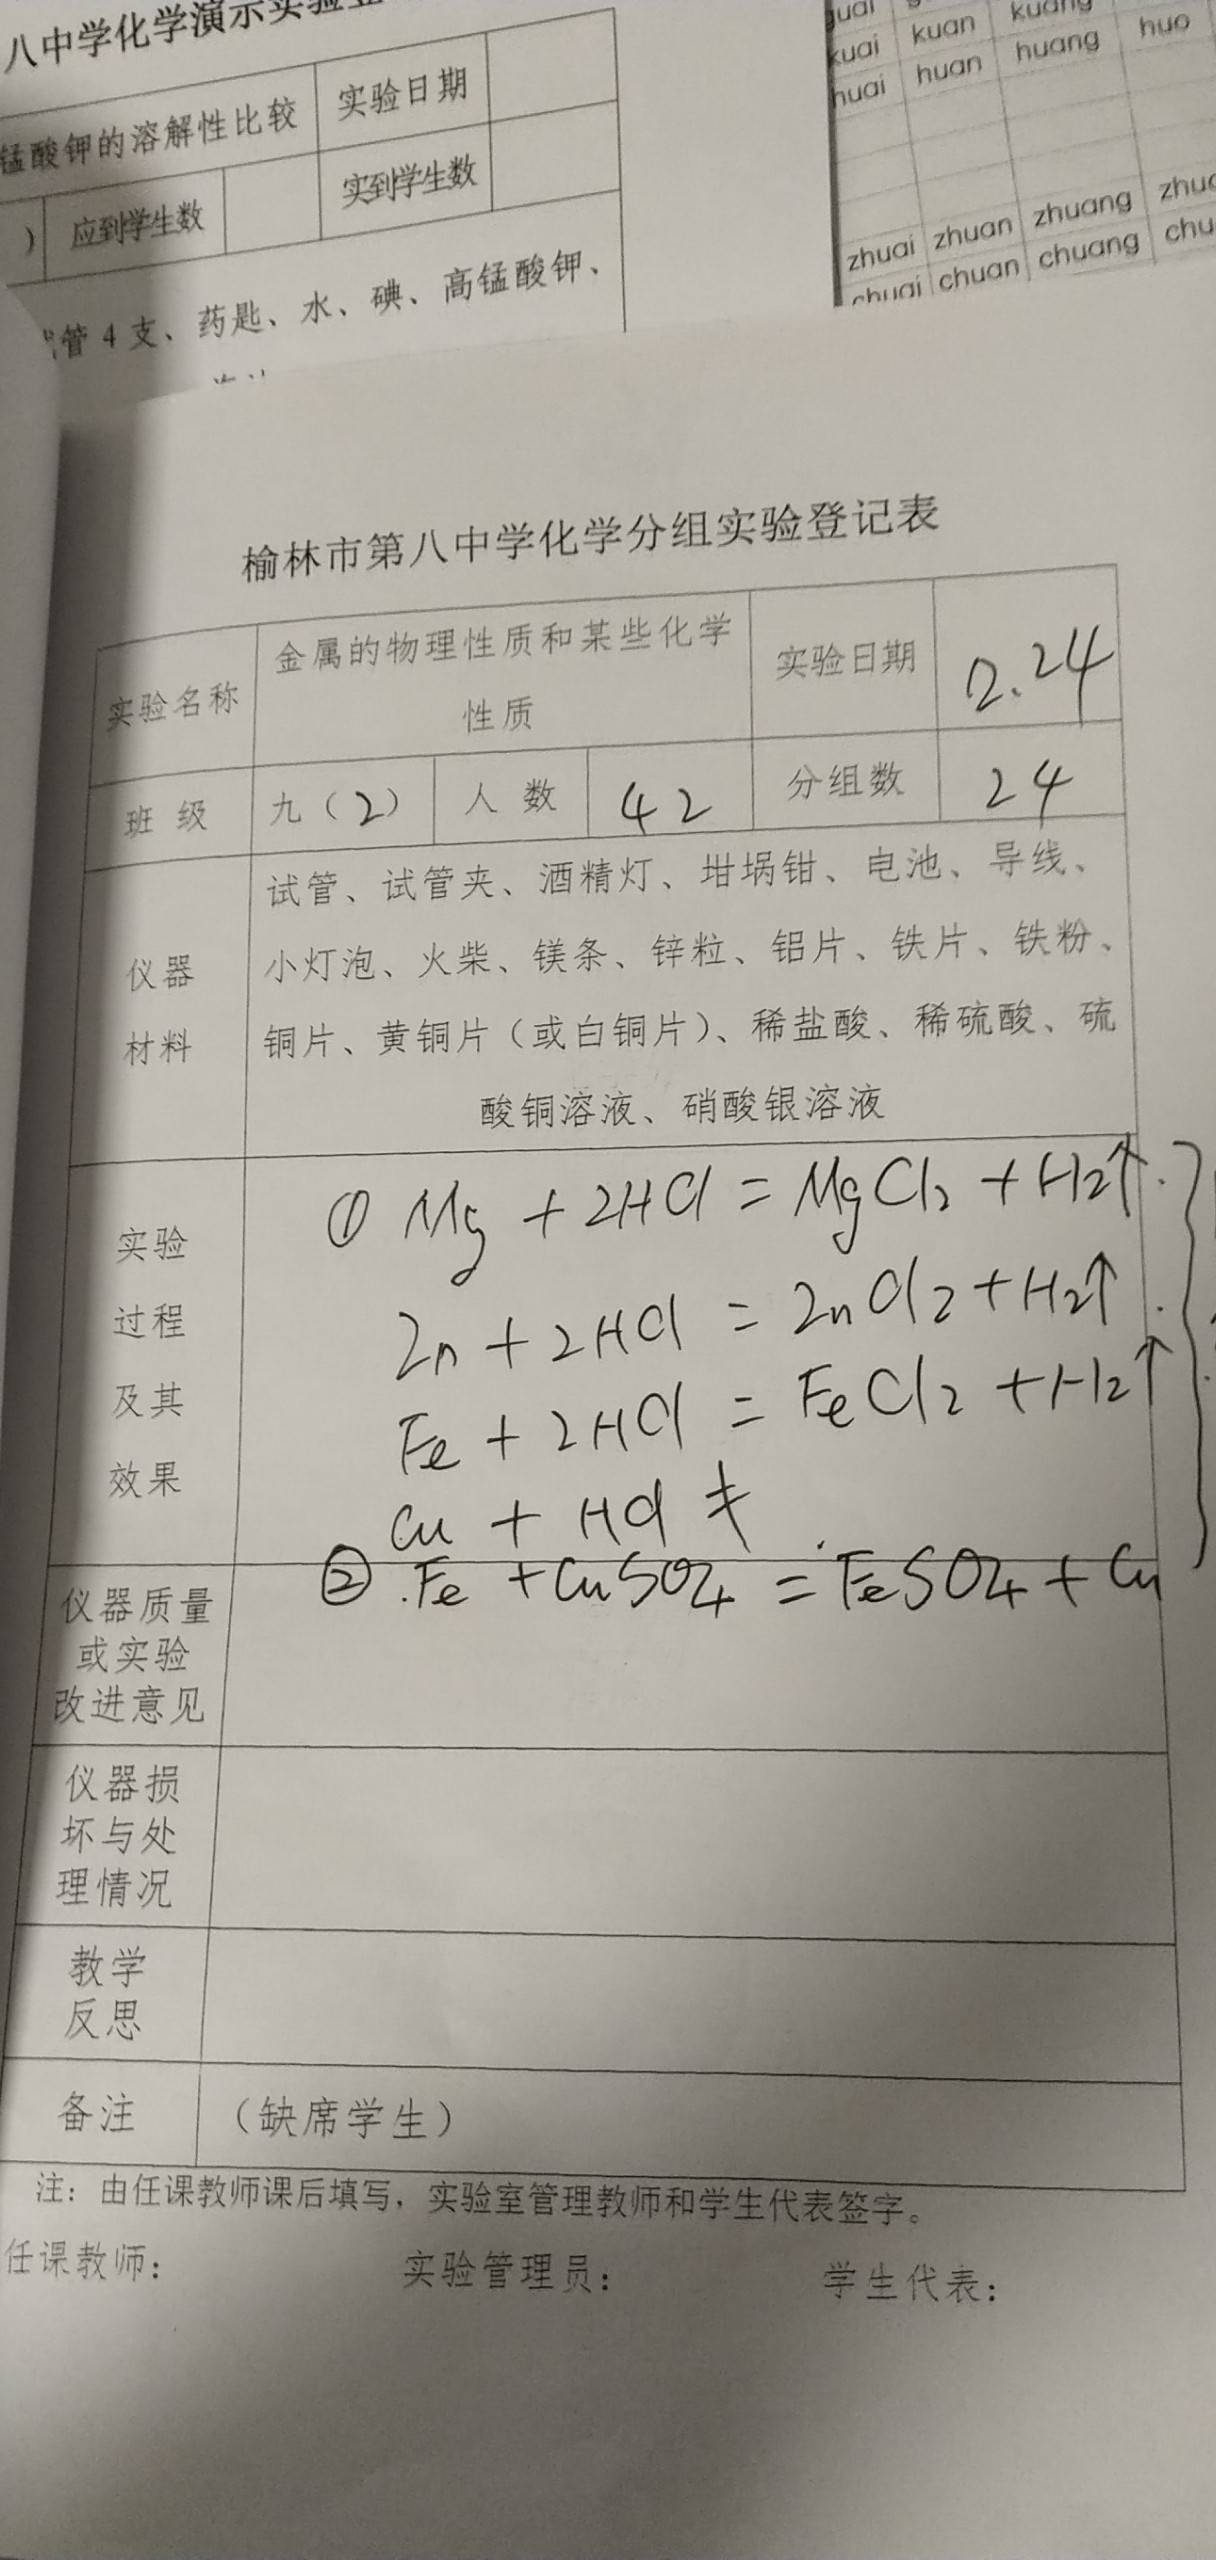 八中学化学演示实验登
锰酸钾的溶解性比较 实验日期
) 应到学生数 实到学生数
管 4 支、药匙、水、碘、高锰酸钾、
kuai kuan kuang
huai huan huang huo
zhuai zhuan zhuang zhuo
chuai chuan chuang chu
榆林市第八中学化学分组实验登记表
实验名称 金属的物理性质和某些化学 实验日期 2.24
性质
班 级 九（2） 人 数 42 分组数 24
仪器
材料
试管、试管夹、酒精灯、坩埚钳、电池、导线、
小灯泡、火柴、镁条、锌粒、铝片、铁片、铁粉、
铜片、黄铜片（或白铜片）、稀盐酸、稀硫酸、硫
酸铜溶液、硝酸银溶液
实验
过程
及其
效果
① Mg + 2HCl = MgCl₂ + H₂↑
Zn + 2HCl = ZnCl₂ + H₂↑
Fe + 2HCl = FeCl₂ + H₂↑
Cu + HCl ≠
② Fe + CuSO₄ = FeSO₄ + Cu
仪器质量
或实验
改进意见
仪器损
坏与处
理情况
教学
反思
备注 （缺席学生）
注：由任课教师课后填写，实验室管理教师和学生代表签字。
任课教师： 实验管理员： 学生代表：